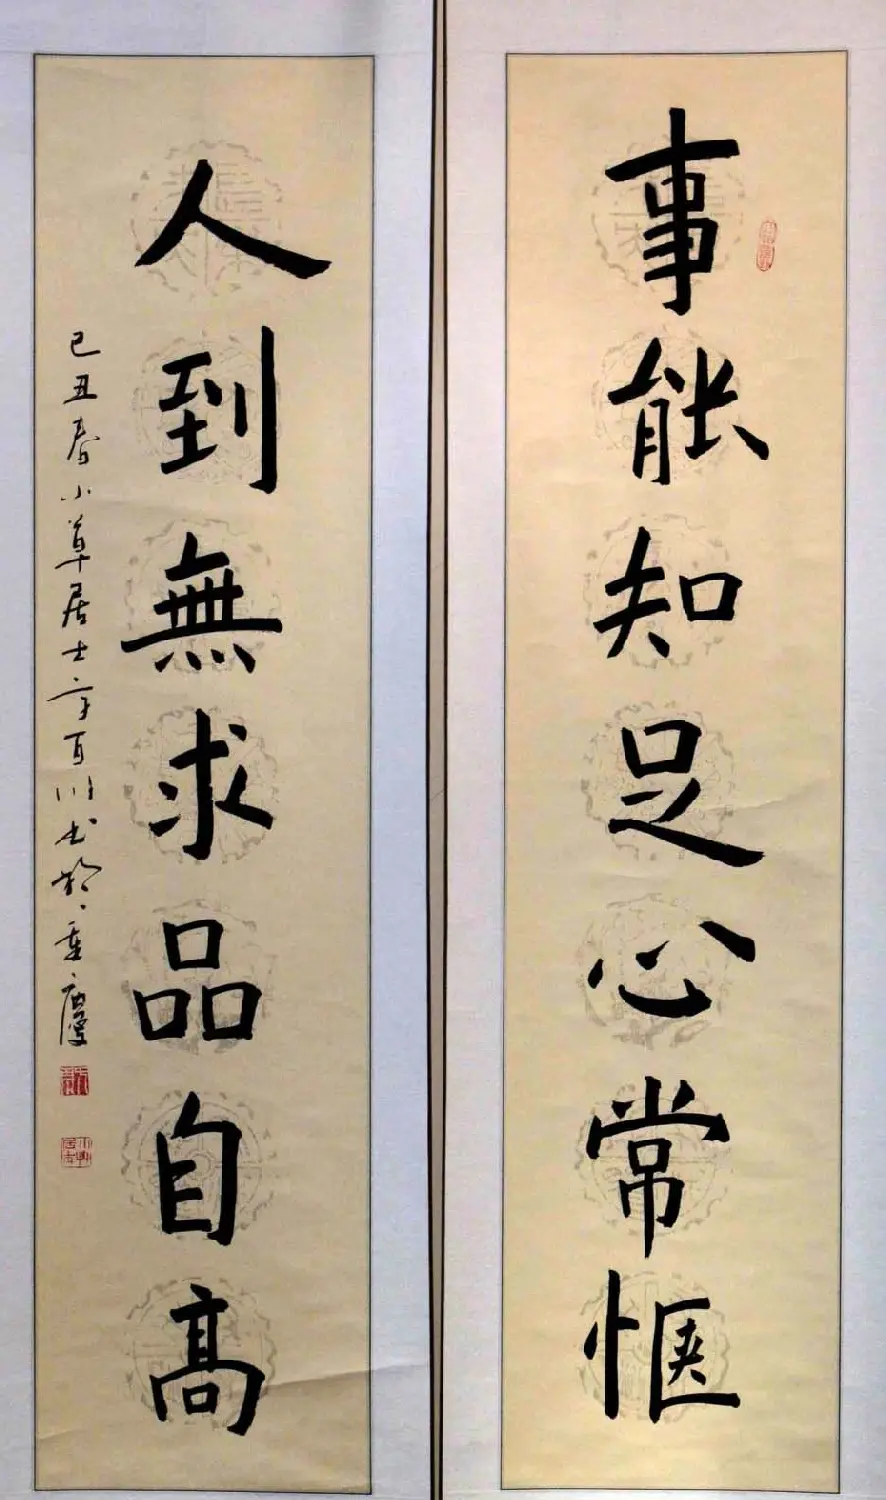 事能知足心常惬
人到無求品自高
己丑春小草居士百川书於重慶